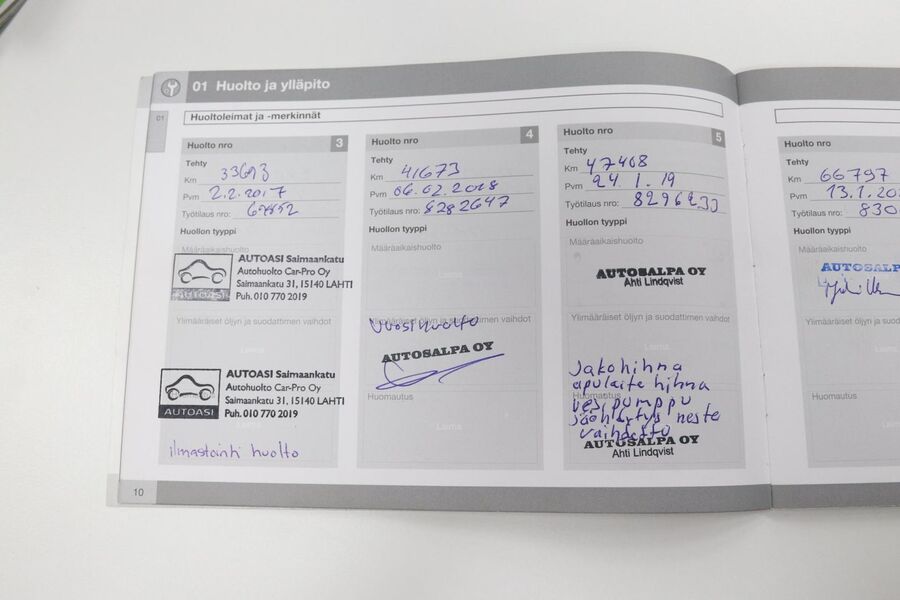 01 Huolto ja ylläpito
01
Huoltoleimat ja -merkinnät
Huolto nro 3
Tehty
Km
Pvm 2.2.2017
Työtilaus nro:
Huollon tyyppi
Määräaikaishuolto
AUTOASI
AUTOASI Saimaankatu
Autohuolto Car-Pro Oy
Saimaankatu 31, 15140 LAHTI
Puh. 010 770 2019
Ylimääräiset öljyn ja suodattimen vaihdot
Leima
AUTOASI
AUTOASI Saimaankatu
Autohuolto Car-Pro Oy
Saimaankatu 31, 15140 LAHTI
Puh. 010 770 2019
ilmastointi huolto
10
Huolto nro 4
Tehty
Km 41673
Pvm 06.02.2018
Työtilaus nro: 8282647
Huollon tyyppi
Määräaikaishuolto
Leima
Ylimääräiset öljyn ja suodattimen vaihdot
Vuosihuolto
AUTOSALPA OY
Huomautus
Leima
Huolto nro 5
Tehty
Km 47468
Pvm 24.1.19
Työtilaus nro:
Huollon tyyppi
Määräaikaishuolto
AUTOSALPA OY
Ahti Lindqvist
Ylimääräiset öljyn ja suodattimen vaihdot
Leima
Huomautus
Jakohihna
apulaite hihna
vesi pumppu
jäähdytys neste
vaihdettu
AUTOSALPA OY
Ahti Lindqvist
Huolto nro
Tehty
Km 66797
Pvm 13.1.20
Työtilaus nro: 830
Huollon tyyppi
Määräaikaishuolto
AUTOSALP
Ylimääräiset öljyn ja
Huomautus